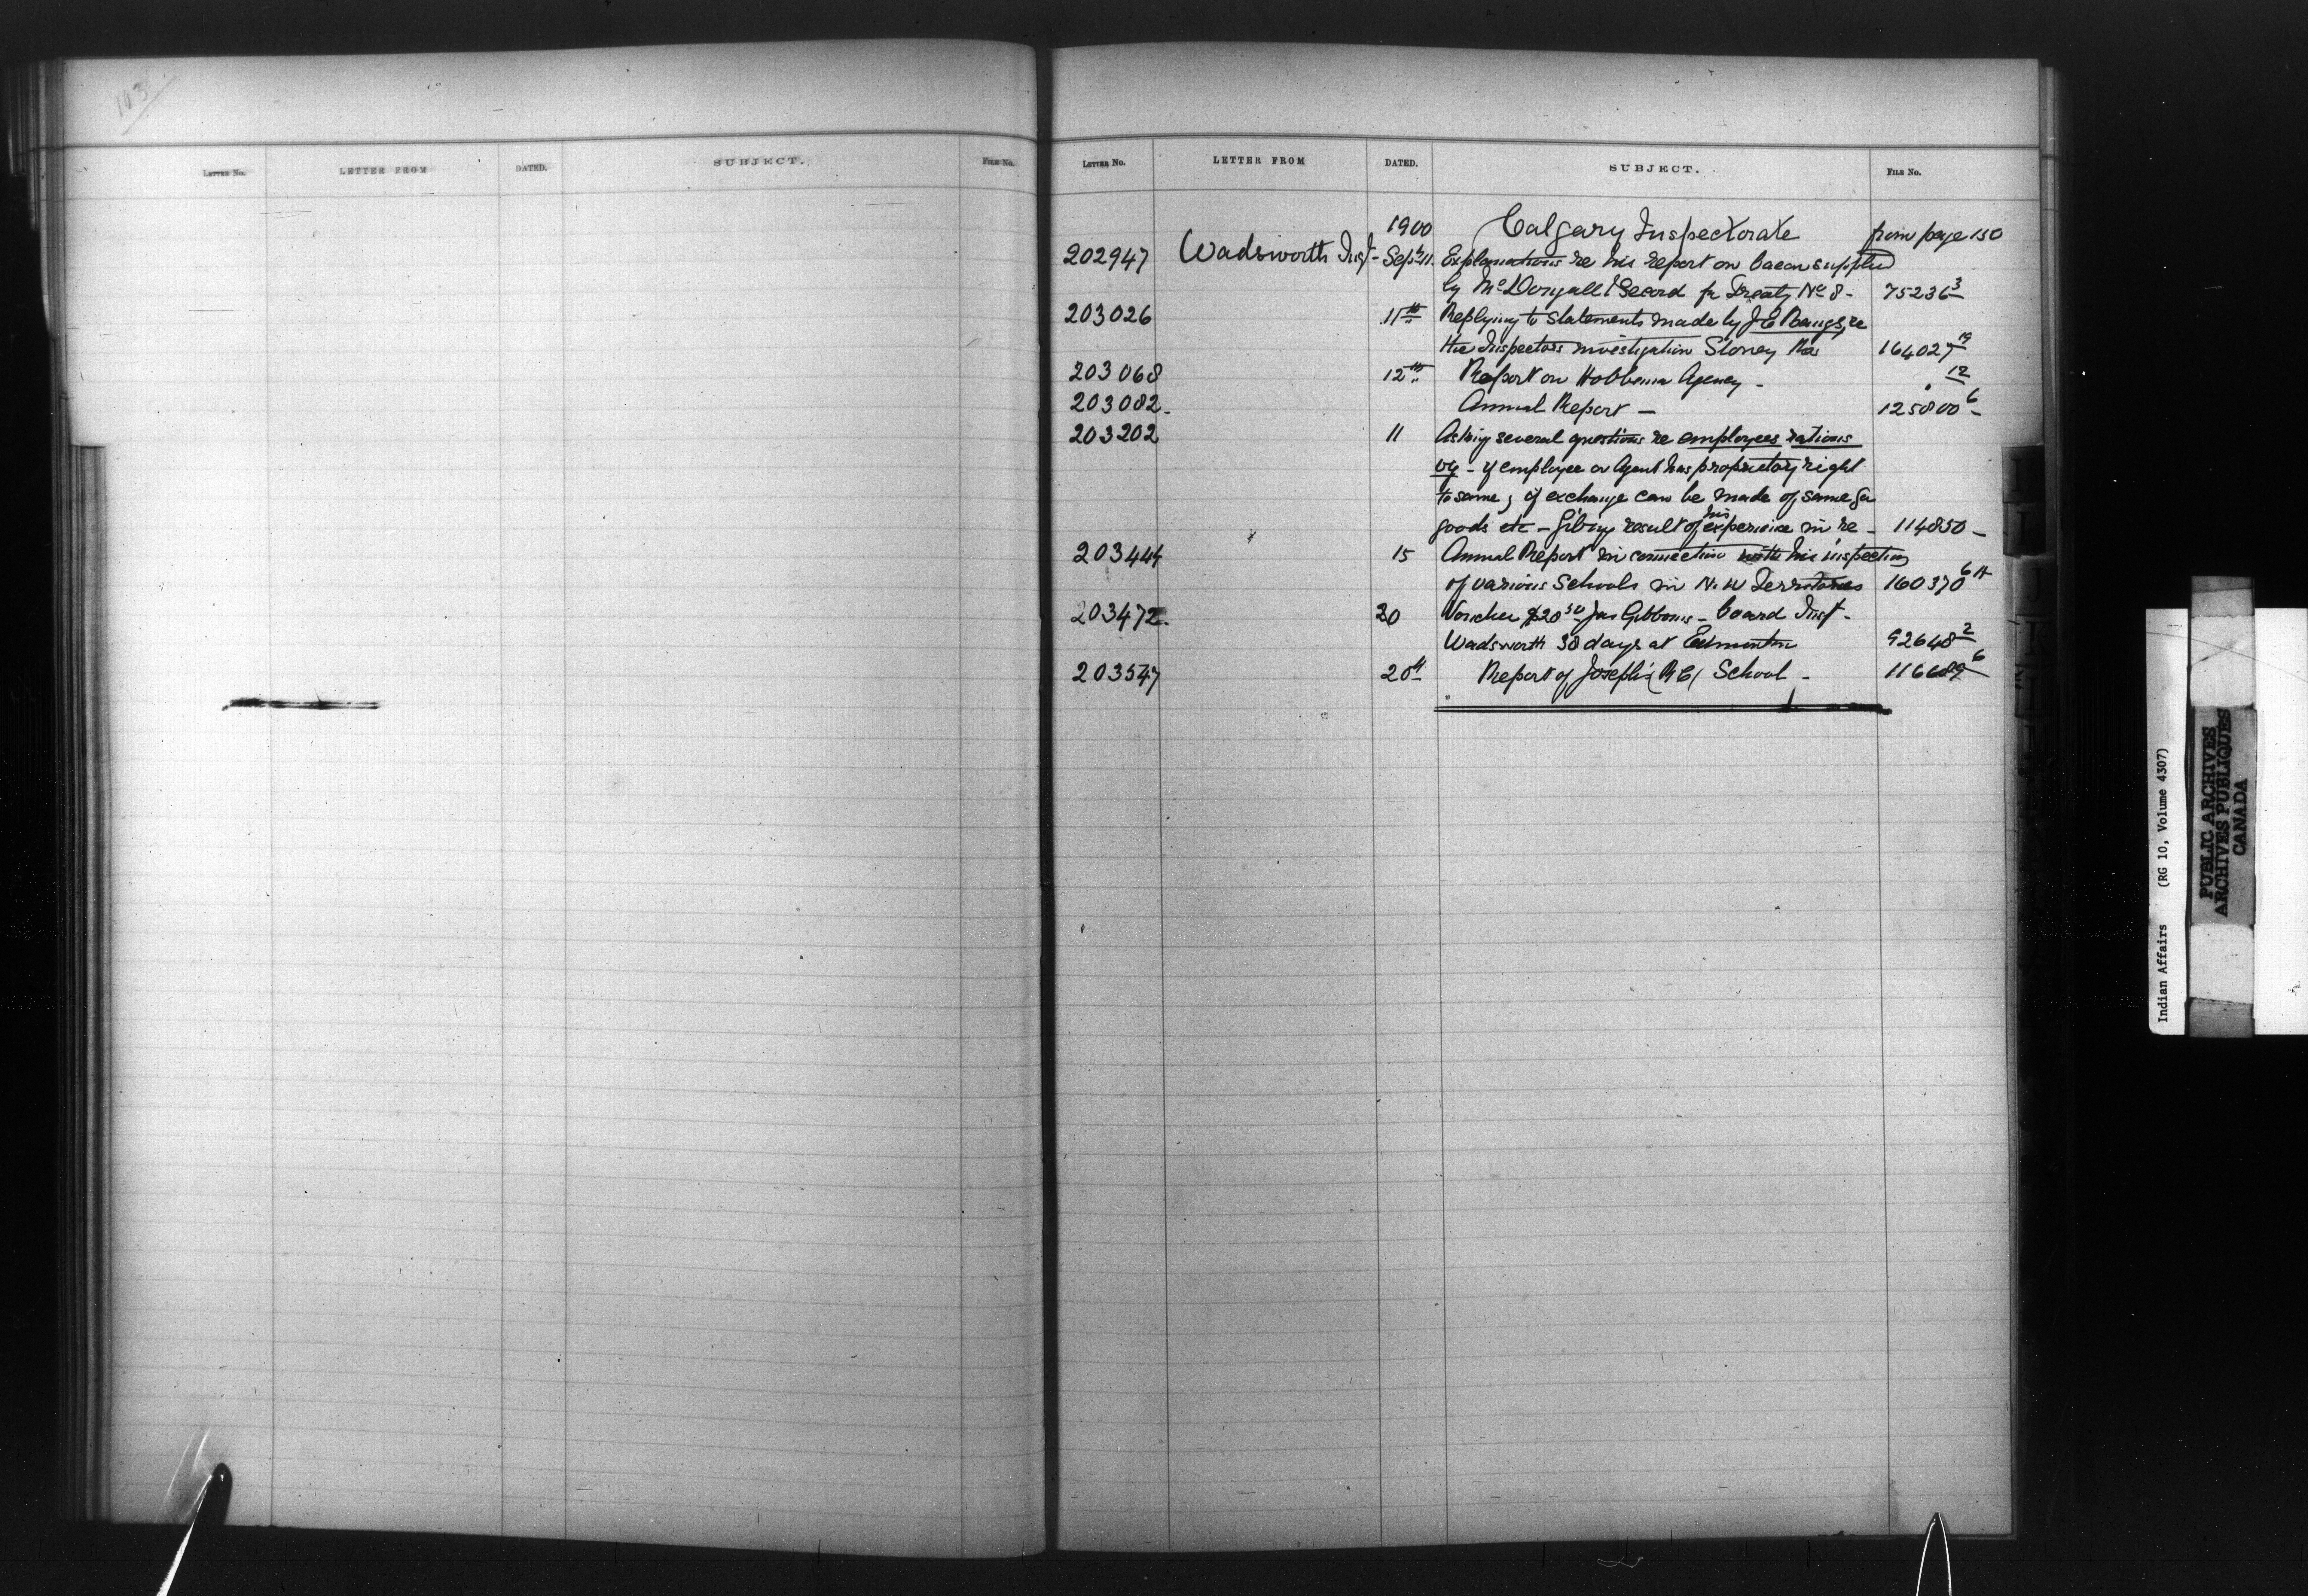 103
LETTER NO. LETTER FROM DATED. SUBJECT. FILE NO.
LETTER NO. LETTER FROM DATED. SUBJECT. FILE NO.
1900 Calgary Inspectorate from page 130
202947 Wadsworth Insp - Sept 11. Explanations re his report on bacon supplied
by McDougall & Secord for Treaty No 8 - 75236 3
203026 11th Replying to Statements made by J E Bangs, re
the Inspectors investigation Stoney Res 164027 19
203068 12th Report on Hobbema Agency - " 12
203082 - Annual Report - 125800 6 -
203202 11 Asking several questions re employees rations
vz - if employee or Agent has proprietory right
to same, if exchange can be made of same for
goods etc - Giving result of his experience in re - 114850 -
203444 15 Annual Report in connection with his inspection
of various Schools in N. W Territories 160370 6
203472. 20 Voucher $20 50 Jas Gibbons - board Insp -
Wadsworth 38 days at Edmonton 92648 2
203547 20th Report of Joseph's (RC) School - 116689 6
Indian Affairs (RG 10, Volume 4307)
PUBLIC ARCHIVES
ARCHIVES PUBLIQUES
CANADA